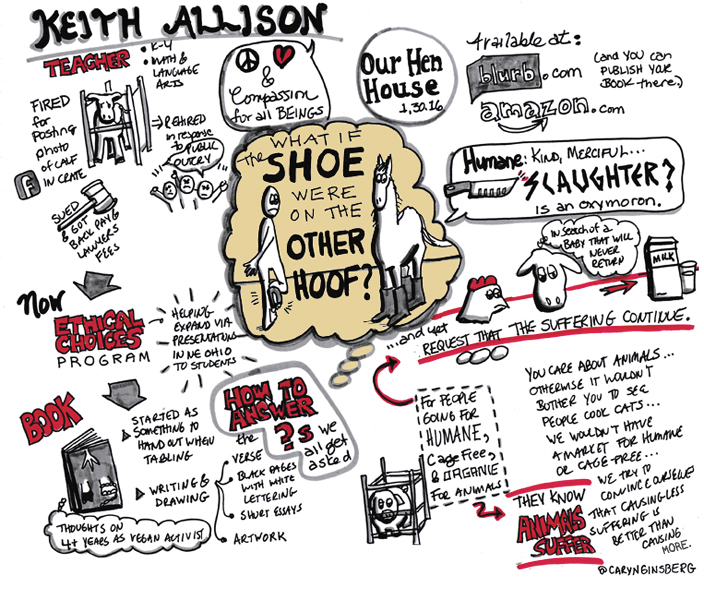 KEITH ALLISON
TEACHER
• K-4
• MATH &
LANGUAGE
ARTS
FIRED
for
Posting
photo
of CALF
IN CRATE
f
→ REHIRED
in response
to PUBLIC
OUTCRY
SUED
& GOT
BACK PAY &
LAWYERS
FEES
Now
ETHICAL
CHOICES
PROGRAM
HELPING
EXPAND VIA
PRESENTATIONS
IN NE OHIO
TO STUDENTS
BOOK
STARTED AS
SOMETHING TO
HAND OUT WHEN
TABLING
WRITING &
DRAWING
THOUGHTS ON
4+ YEARS AS VEGAN ACTIVIST
HOW TO
ANSWER
the ?s we
all get
asked
• VERSE
• BLACK PAGES
WITH WHITE
LETTERING
• SHORT ESSAYS
• ARTWORK
&
Compassion
for all BEINGS
Our Hen
House
1.30.16
WHAT IF
The SHOE
WERE
ON THE
OTHER
HOOF?
Available at:
blurb.com
(and YOU CAN
PUBLISH YOUR
BOOK there.)
amazon.com
Humane: KIND, MERCIFUL...
SLAUGHTER?
is an oxymoron.
IN Search of a
BABY THAT WILL
NEVER
RETURN
MILK
...and yet
REQUEST THAT THE SUFFERING CONTINUE.
For PEOPLE
GOING FOR
HUMANE,
Cage Free,
& ORGANIC
FOR ANIMALS
YOU CARE ABOUT ANIMALS...
OTHERWISE IT WOULDN'T
BOTHER YOU TO SEE
PEOPLE COOK CATS...
WE WOULDN'T HAVE
A MARKET FOR HUMANE
OR CAGE-FREE...
WE TRY TO
CONVINCE OURSELVES
THAT CAUSING LESS
SUFFERING IS
BETTER THAN
CAUSING
MORE.
THEY KNOW
ANIMALS
SUFFER
@CARYNGINSBERG